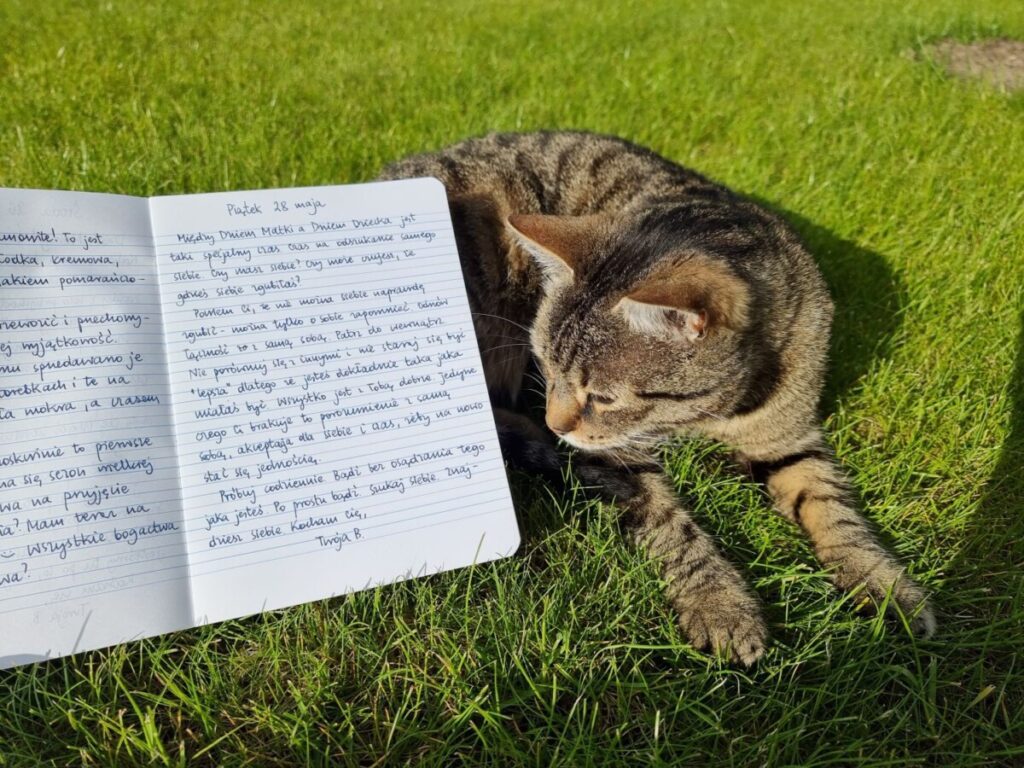 anowite! To jest
łodka, kremowa,
akiem pomarańczo-
i piechomy-
ej wyjątkowość.
mu spredawano je
arebkach i te na
ła mokra, a czasem
oskwinie to pierwsze
na się sezon wielkiej
wa na przyjęcie
a? Mam teraz na
Wszystkie bogactwa
wa?
Piątek 28 maja
Między Dniem Matki a Dniem Dziecka jest
taki specjalny czas. Czas na odszukanie samego
siebie. Czy masz siebie? Czy może czujesz, że
gdzieś siebie zgubiłaś?
Powiem Ci, że nie można siebie naprawdę
zgubić - można tylko o sobie zapomnieć. Odnów
łączność ze z samą sobą. Patrz do wewnątrz.
Nie porównuj się z innymi i nie staraj się być
"lepsza" dlatego że jesteś dokładnie taka jaka
miałaś być. Wszystko jest z Tobą dobrze. Jedyne
czego Ci brakuje to porozumienie z samą
sobą, akceptacja dla siebie i czas, żeby na nowo
stać się jednością.
Próbuj codziennie. Bądź bez osądzania tego
jaka jesteś. Po prostu bądź. Szukaj siebie. Znaj-
dziesz siebie. Kocham Cię,
Twoja B.